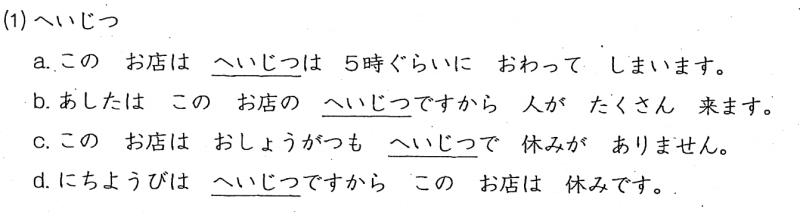 (1) へいじつ
a. この　お店は　へいじつは　5時ぐらいに　おわって　しまいます。
b. あしたは　この　お店の　へいじつですから　人が　たくさん　来ます。
c. この　お店は　おしょうがつも　へいじつで　休みが　ありません。
d. にちようびは　へいじつですから　この　お店は　休みです。